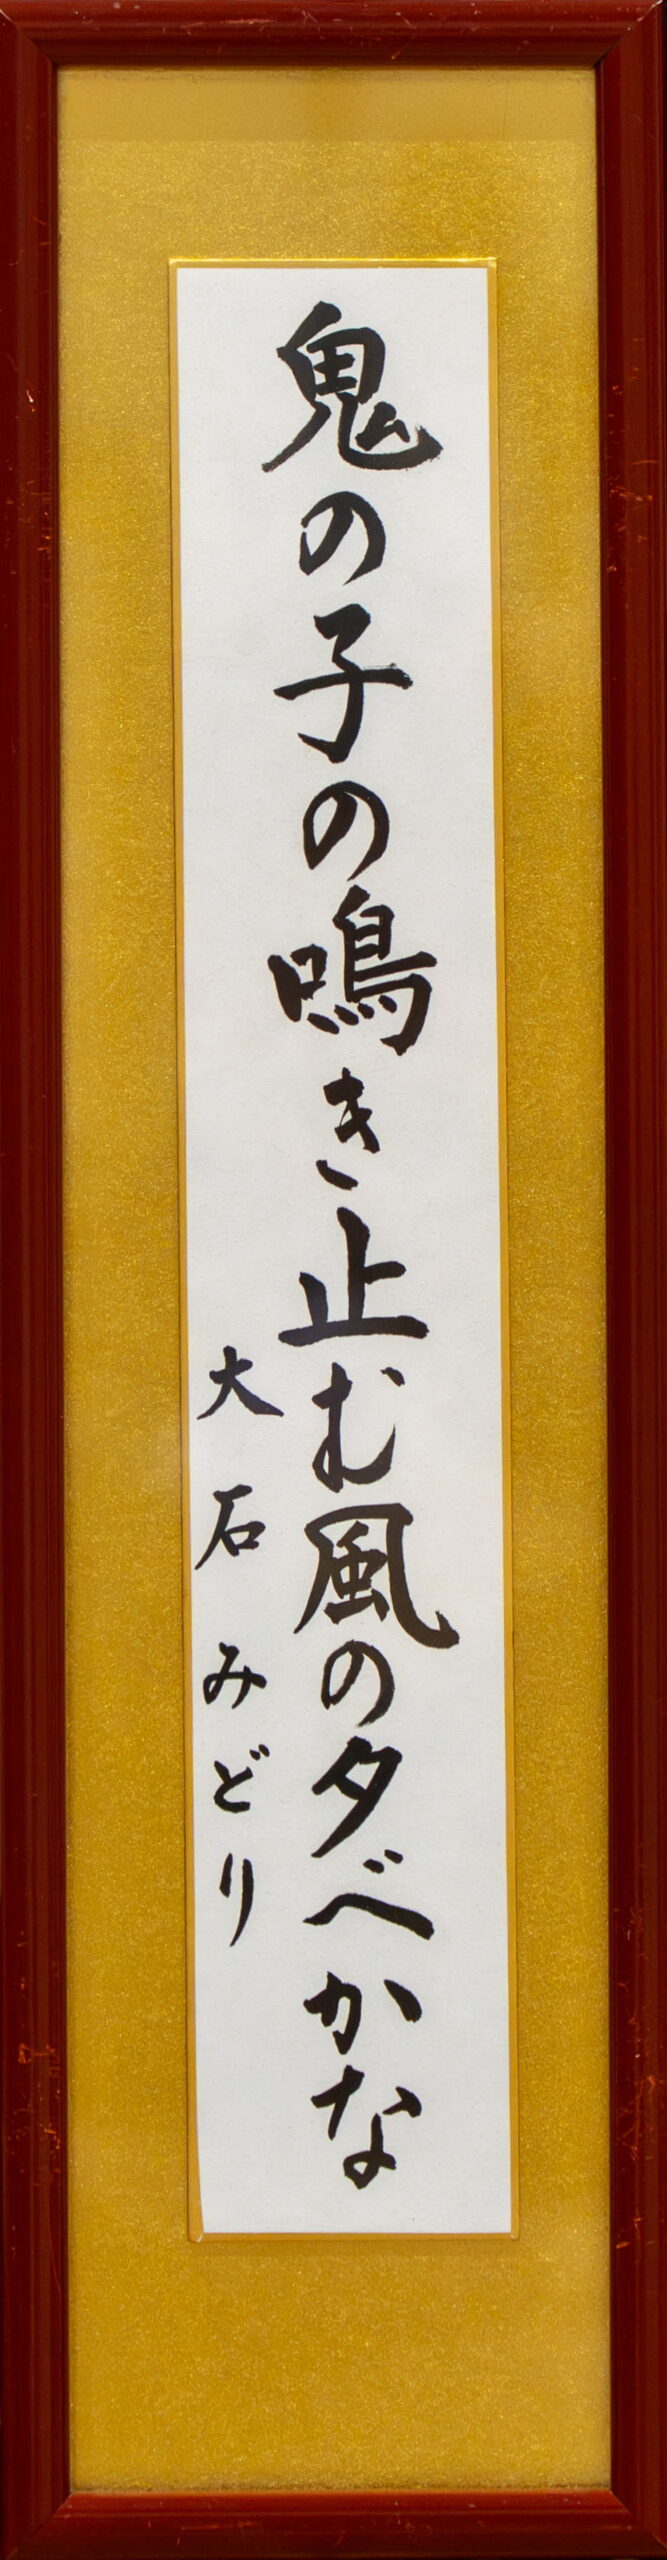 鬼の子の鳴き止む風の夕べかな
大石みどり